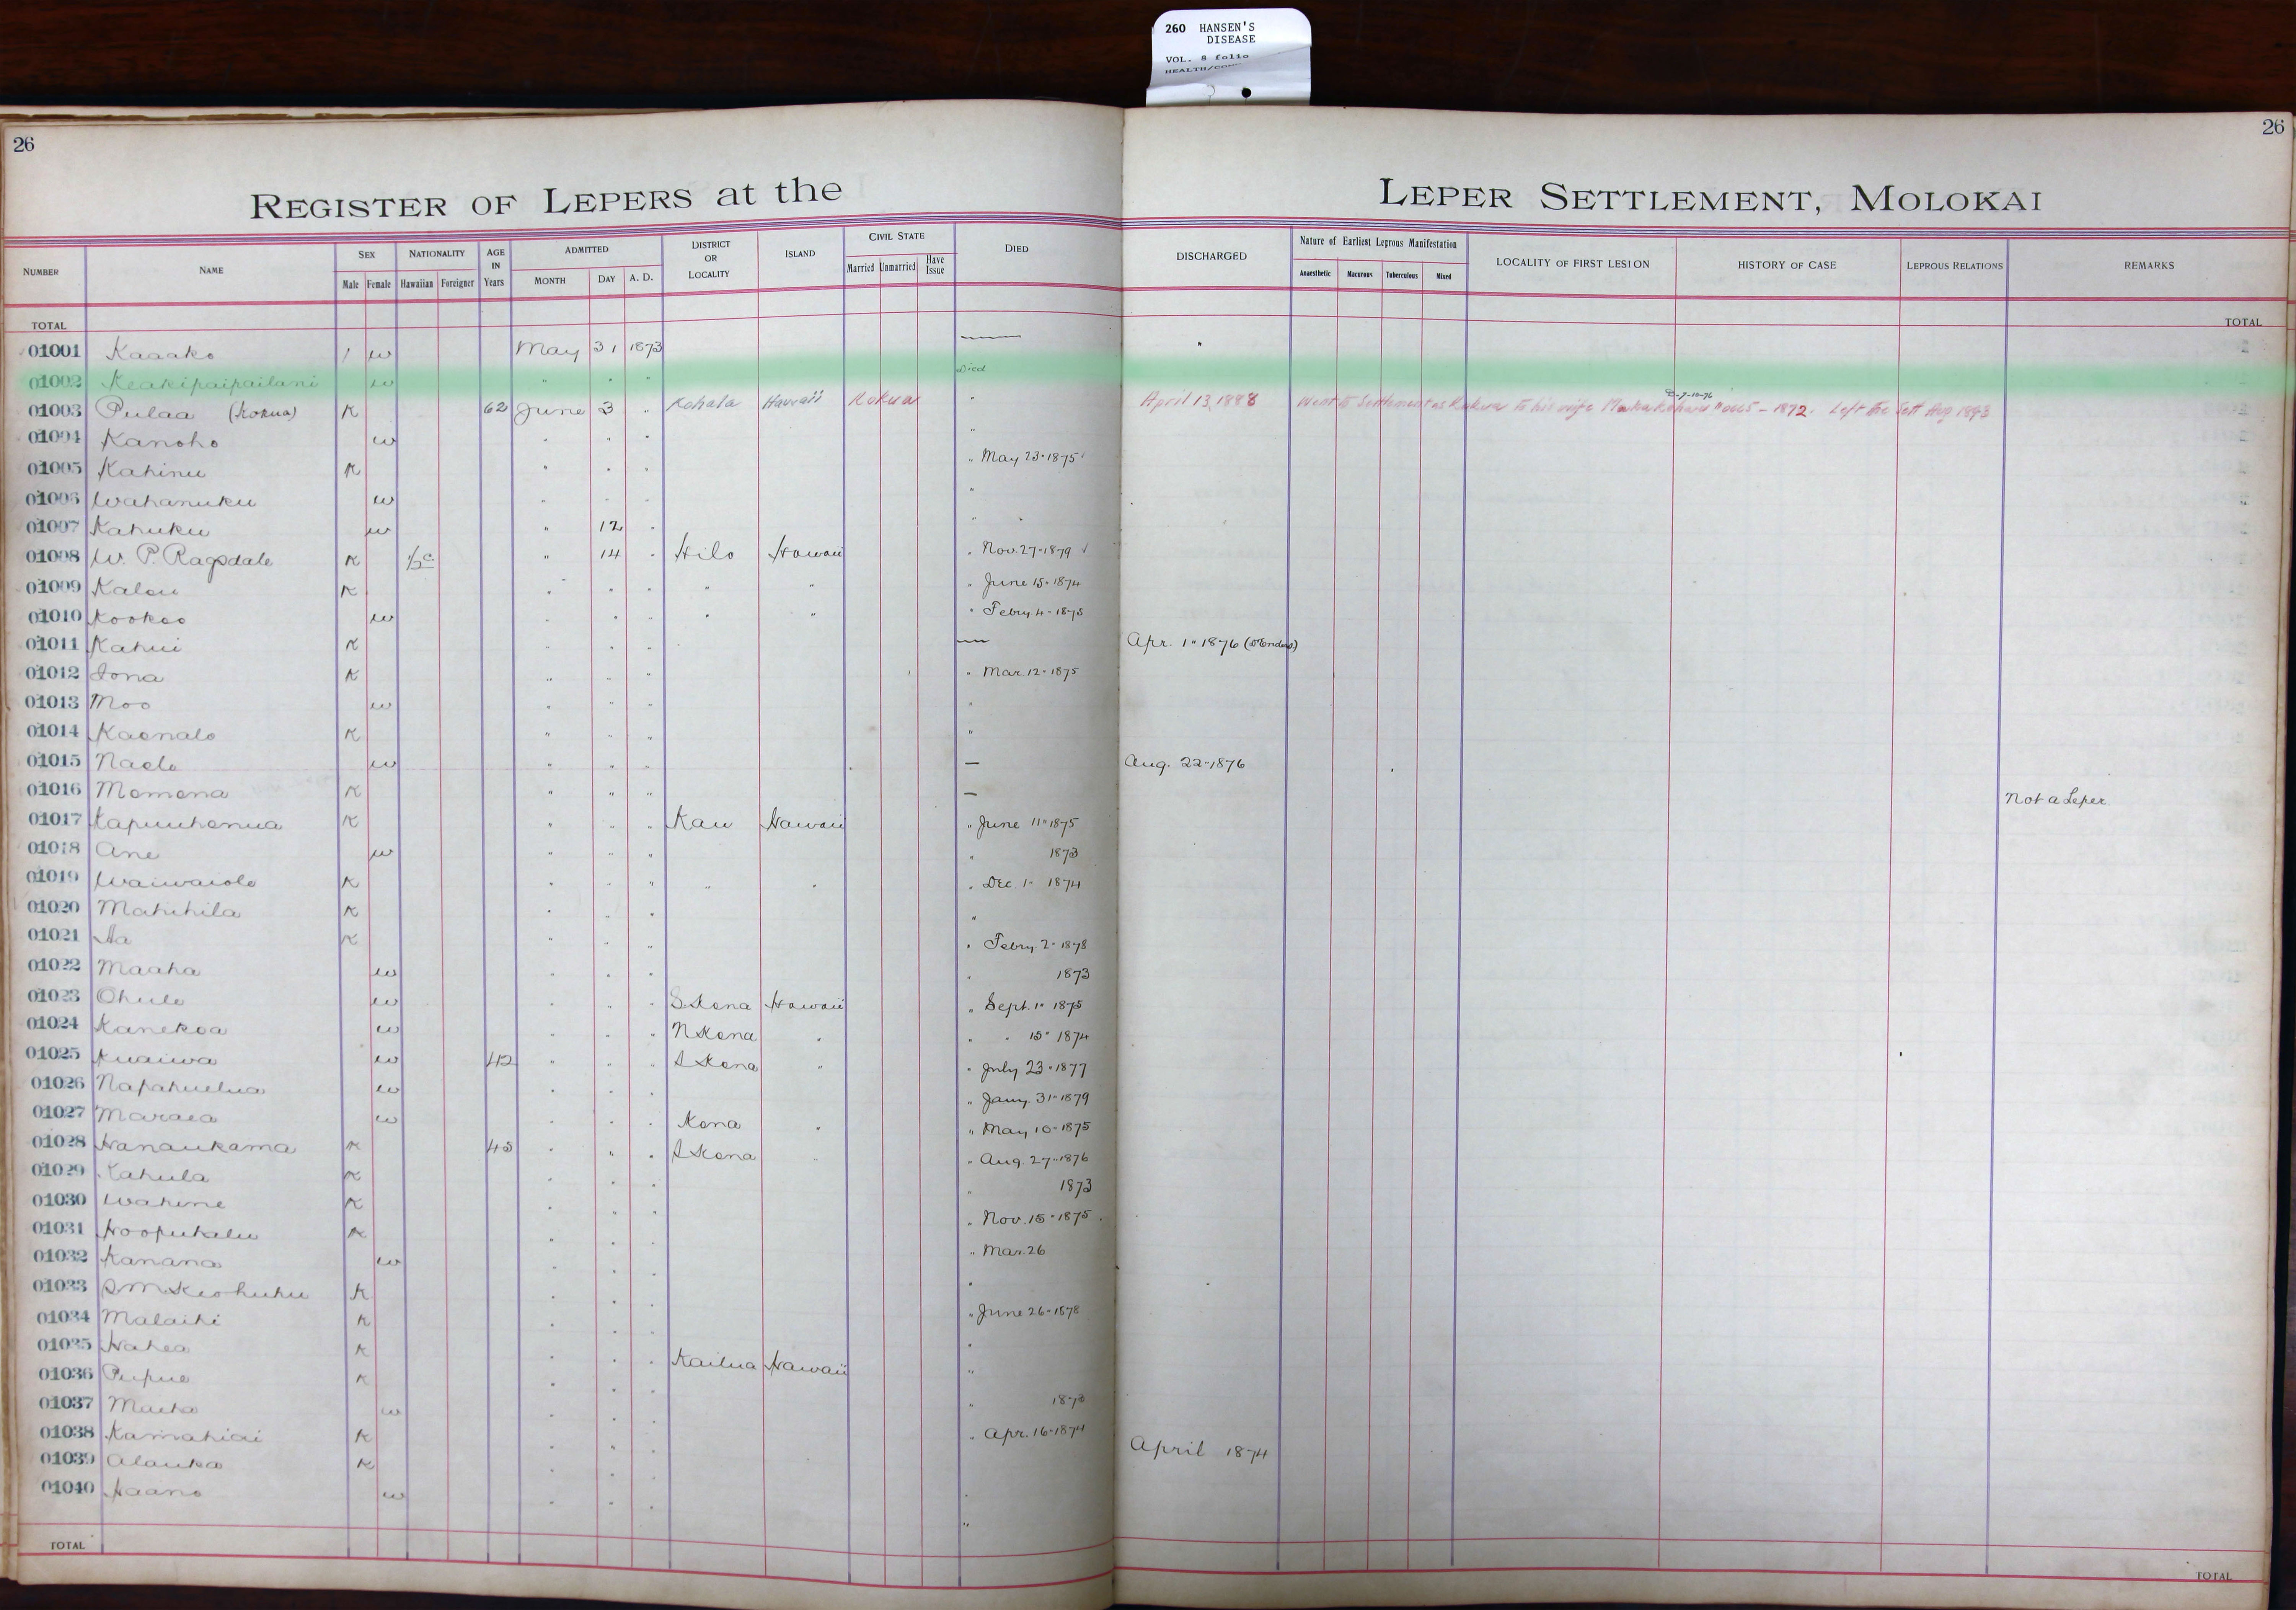 260 HANSEN'S
DISEASE
VOL. 8 folio
26
26
REGISTER OF LEPERS at the LEPER SETTLEMENT, MOLOKAI
NUMBER NAME SEX Male Female NATIONALITY Hawaiian Foreigner AGE IN Years ADMITTED MONTH DAY A. D. DISTRICT OR LOCALITY ISLAND CIVIL STATE Married Unmarried Have Issue DIED DISCHARGED Nature of Earliest Leprous Manifestation Anaesthetic Macurous Tuberculous Mixed LOCALITY OF FIRST LESION HISTORY OF CASE LEPROUS RELATIONS REMARKS
TOTAL TOTAL
01001 Kaaako w May 31 1873
01002 Keakipaipailani w " " " Died
01003 Pulaa (Kokua) K 62 June 3 " Kohala Hawaii Kokua April 13, 1888 Went to Settlement as Kokua to his wife 1872. Left the Sett Aug 1893
01004 Kanoho w " " " "
01005 Kahinu K " " " " May 23" 1875
01006 Wahanuku w " " " "
01007 Kahuku w " 12 " "
01008 W. P. Ragsdale K 1/2 c " 14 " Hilo Hawaii " Nov. 27" 1879
01009 Kalou K " " " " " " June 15" 1874
01010 Kookoo w " " " " " " Febry 4" 1875
01011 Kahui K " " " — Apr. 1" 1876
01012 Iona K " " " " Mar. 12" 1875
01013 Moo w " " " "
01014 Kaonalo K " " " "
01015 Naelo w " " " — Aug. 22" 1876
01016 Momona K " " " — Not a Leper
01017 Kapuuhonua K " " " Kau Hawaii " June 11" 1875
01018 Ane w " " " " 1873
01019 Waiwaiole K " " " " " " Dec. 1" 1874
01020 Mahihila K " " " "
01021 Aa K " " " " Febry 2" 1878
01022 Maaha w " " " " 1873
01023 Ohule w " " " S. Kona Hawaii " Sept. 1" 1875
01024 Kanekoa w " " " N Kona " " " 15" 1874
01025 Kuaiwa w 42 " " " S Kona " " July 23" 1877
01026 Napahuelua w " " " " Jany. 31" 1879
01027 Maraea w " " " Kona " " May 10" 1875
01028 Hanaukama K 45 " " " S Kona " " Aug. 27" 1876
01029 Kahula K " " " " 1873
01030 Wahine K " " " " Nov. 15" 1875
01031 Hoopukalu K " " " " Mar. 26
01032 Kanana w " " " "
01033 S M Keohuhu K " " " " June 26" 1878
01034 Malaihi K " " " "
01035 Hahea K " " " Kailua Hawaii "
01036 Pupue K " " " " 1873
01037 Maeha w " " " " Apr. 16" 1874
01038 Kamahiai K " " " April 1874
01039 Alauka K " " " "
01040 Haano w " " " "
TOTAL TOTAL